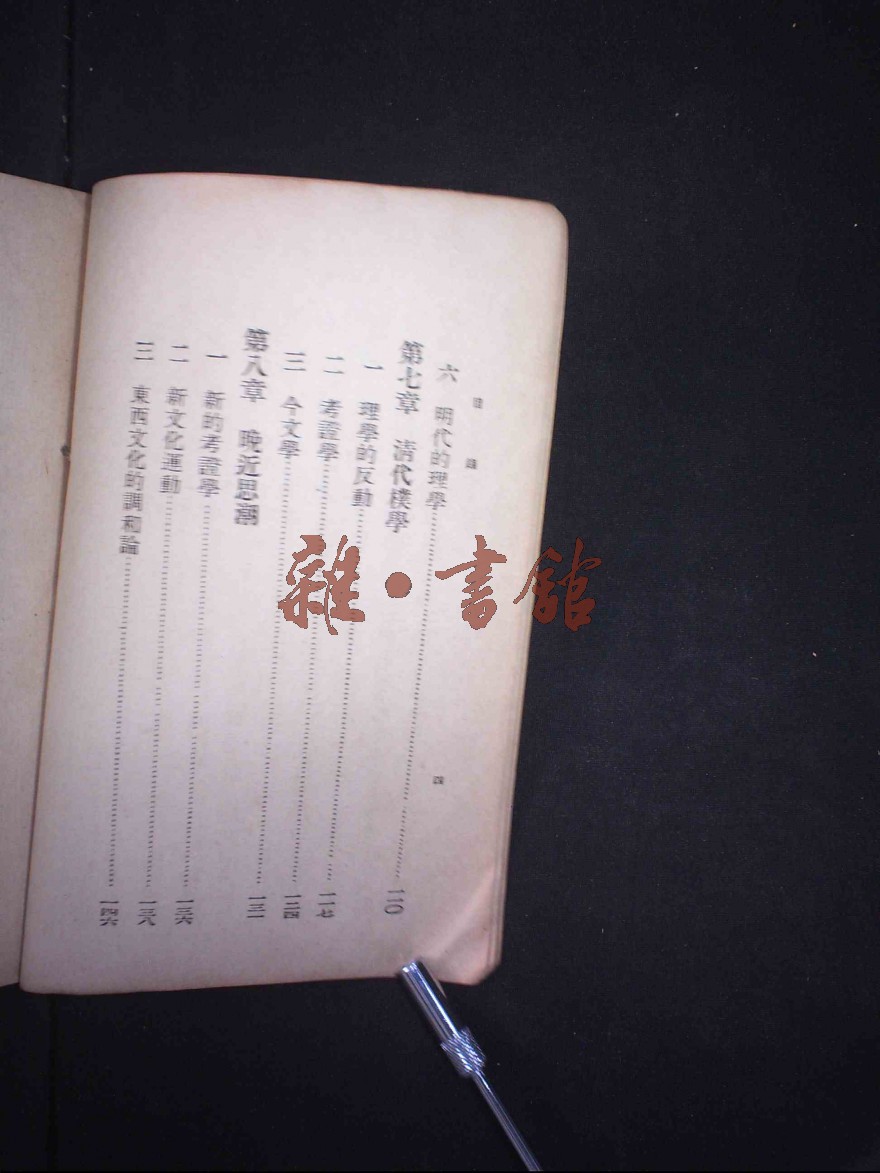 目錄 四
六 明代的理學……一一〇
第七章 清代樸學
一 理學的反動……一一七
二 考證學……一二四
三 今文學……一三一
第八章 晚近思潮
一 新的考證學……一三六
二 新文化運動……一三八
三 東西文化的調和論……一四六
雜·書館